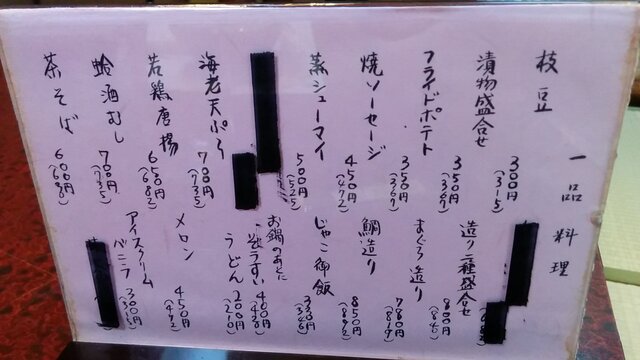 一品料理
枝豆 300円 (315)
漬物盛合せ 350円 (367)
フライドポテト 350円 (367)
焼ソーセージ 450円 (472)
蒸シューマイ 500円 (525)
海老天ぷら 700円 (735)
若鶏唐揚 650円 (682)
蛤酒むし 700円 (735)
茶そば 600円
造り二種盛合せ 800円 (840)
まぐろ造り 780円 (819)
鯛造り 850円 (892)
じゃこ御飯 330円 (346)
お鍋のあとに
ぞうすい 400円 (420)
うどん 200円 (210)
メロン 450円 (472)
アイスクリーム
バニラ 300円 (315)